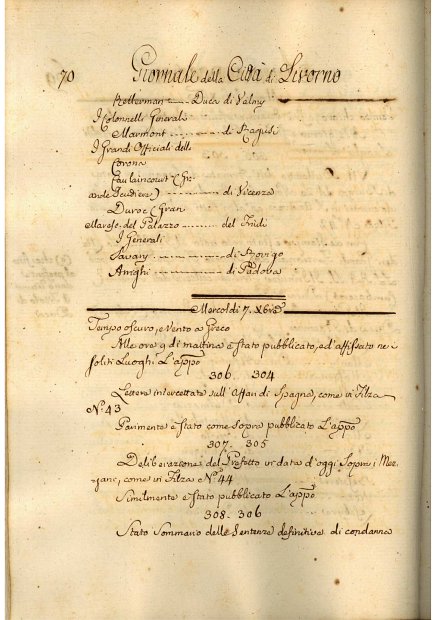 70 Giornale della Città di Livorno
Kellerman —— Duca di Valmy
I Colonnelli Generali
Marmont —— di Ragusi
I Grandi Officiali della
Corona
Caulaincourt (Gr-
ande Scudiere) —— di Vicenza
Duroc (Gran
Maresc. del Palazzo —— del Friuli
I Generali
Savary —— di Rovigo
Arrighi —— di Padova
Mercoldì 7. Xbre
Tempo oscuro, e vento a Greco
Alle ore 9 di mattina è stato pubblicato, ed affissato nei
soliti Luoghi L'appo
306. 304
Lettera intercettata sull' Affari di Spagna, come in Filza
N.º 43
Parimente è stato come sopra pubblicato L'appo
307. 305
Deliberazione del Prefetto in data d'oggi Sopra i
come in Filza N.º 44
Similmente è stato pubblicato L'appo
308. 306
Stato Sommario delle Sentenze definitive di condanna